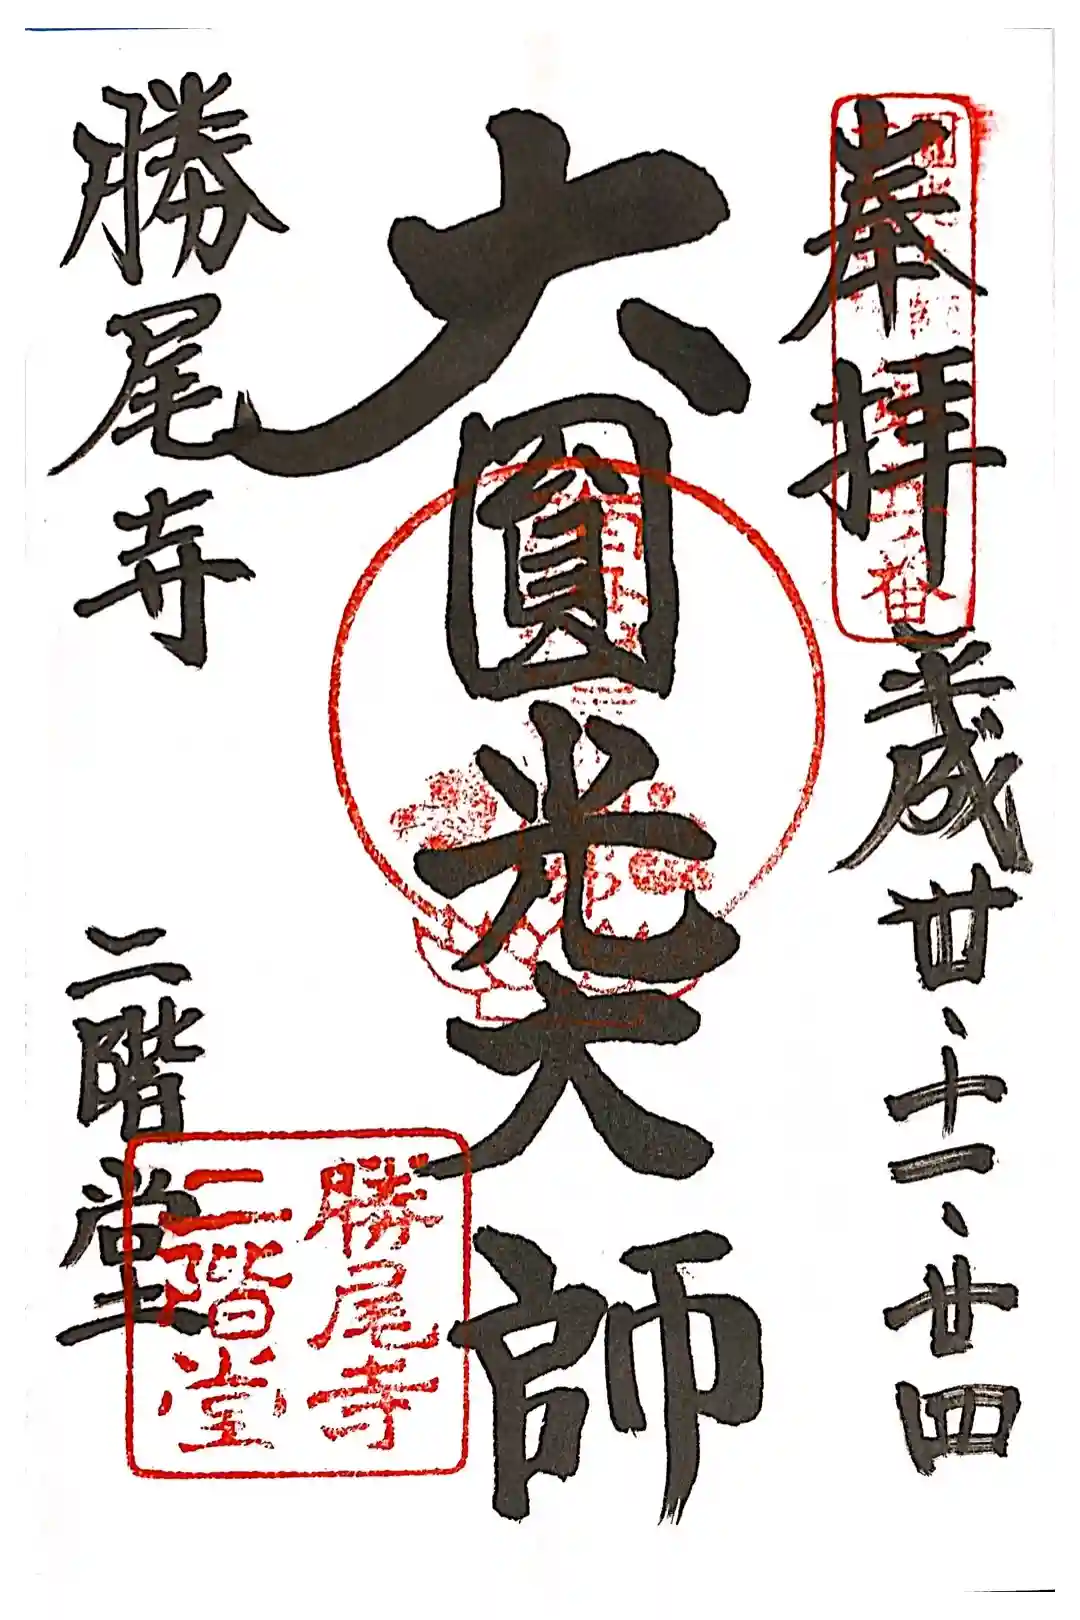 奉拝 平成廿、十一、廿四
番
六圓光大師
勝尾寺 二階堂
勝尾寺
二階堂